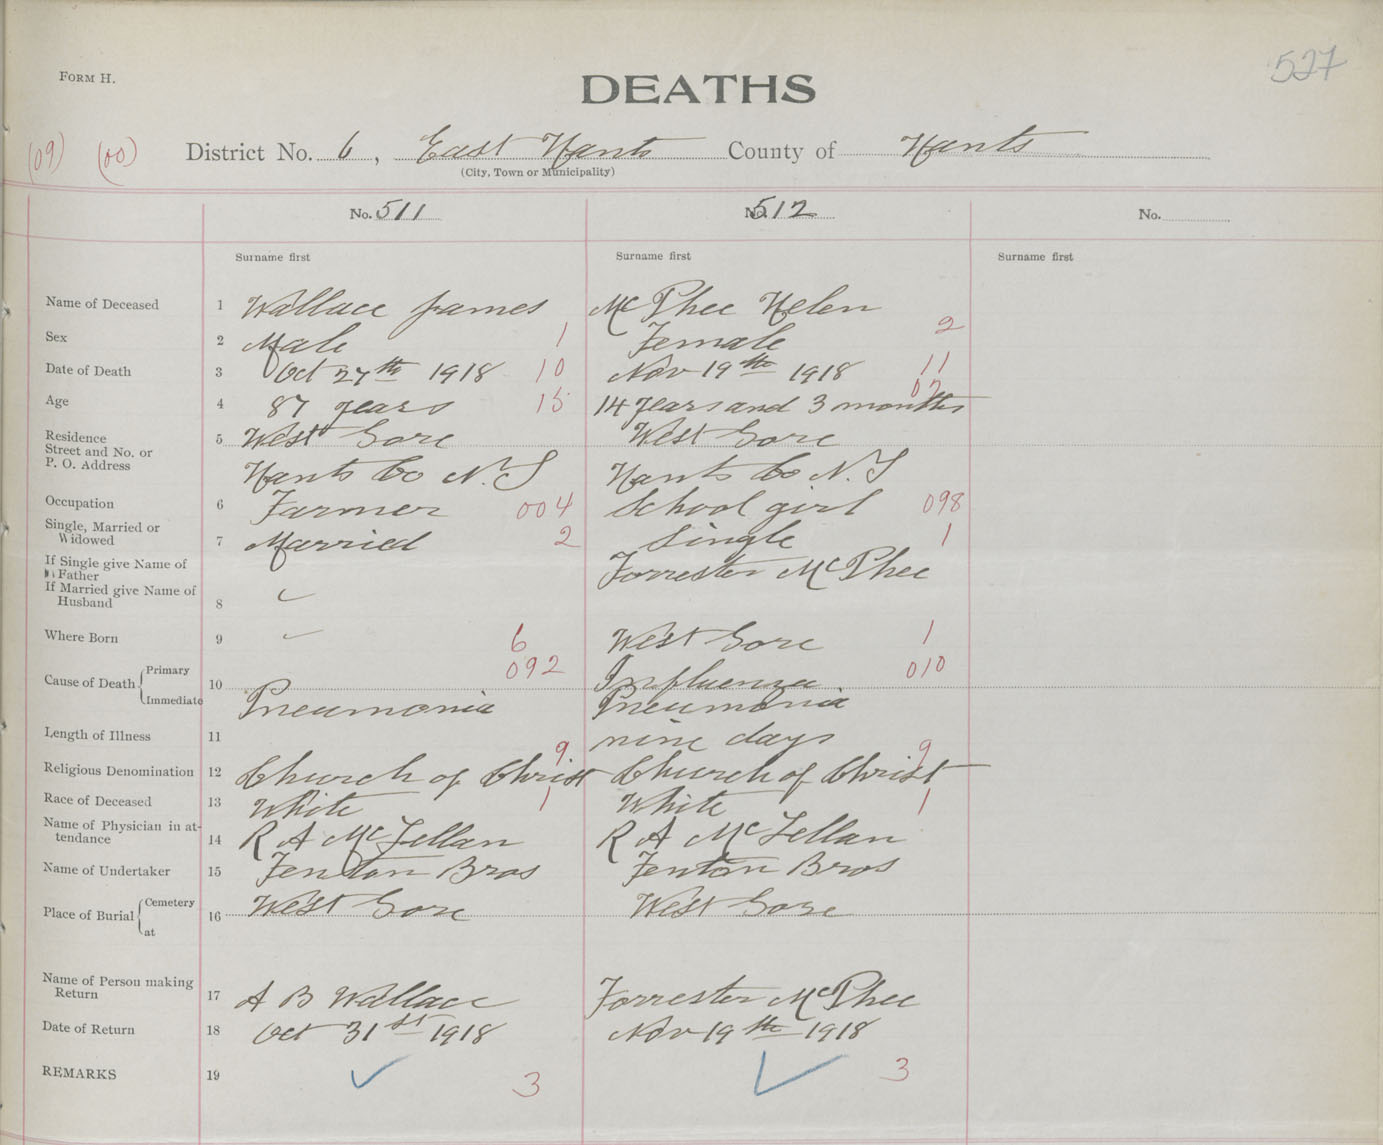 527
FORM H.
DEATHS
(09) (00) District No. 6, East Hants County of Hants
(City, Town or Municipality)
No. 511 No. 512 No.
Surname first Surname first Surname first
Name of Deceased 1 Wallace James McPhee Helen
Sex 2 Male 1 Female 2
Date of Death 3 Oct 27th 1918 10 Nov 19th 1918 11
Age 4 87 years 15 14 years and 3 months 02
Residence 5 West Gore West Gore
Street and No. or
P. O. Address Hants Co N.S Hants Co N.S
Occupation 6 Farmer 004 School girl 098
Single, Married or
Widowed 7 Married 2 Single 1
If Single give Name of
Father Forrester McPhee
If Married give Name of
Husband 8
Where Born 9 6 West Gore 1
Cause of Death Primary 10 092 Influenza 010
Immediate Pneumonia Pneumonia
Length of Illness 11 nine days
Religious Denomination 12 Church of Christ 9 Church of Christ 9
Race of Deceased 13 White 1 White 1
Name of Physician in at-
tendance 14 R A McLellan R A McLellan
Name of Undertaker 15 Fenton Bros Fenton Bros
Place of Burial Cemetery 16 West Gore West Gore
at
Name of Person making
Return 17 A B Wallace Forrester McPhee
Date of Return 18 Oct 31st 1918 Nov 19th 1918
REMARKS 19 3 3